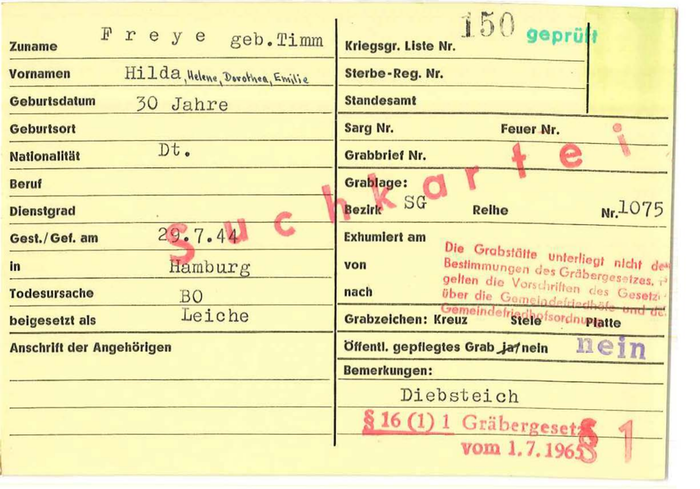 Zuname Freye geb.Timm
Vornamen Hilda, Helene, Dorothea, Emilie
Geburtsdatum 30 Jahre
Geburtsort
Nationalität Dt.
Beruf
Dienstgrad
Gest./Gef. am 29.7.44
in Hamburg
Todesursache BO
beigesetzt als Leiche
Anschrift der Angehörigen
150 geprüft
Kriegsgr. Liste Nr.
Sterbe-Reg. Nr.
Standesamt
Sarg Nr. Feuer Nr.
Grabbrief Nr.
Grablage:
Bezirk SG Reihe Nr. 1075
Suchkartei
Exhumiert am
von
nach
Die Grabstätte unterliegt nicht den
Bestimmungen des Gräbergesetzes.
gelten die Vorschriften des Gesetz
über die Gemeindefriedhöfe und de
Gemeindefriedhofsordnung
Grabzeichen: Kreuz Stele Platte
Öffentl. gepflegtes Grab ja/nein nein
Bemerkungen:
Diebsteich
§ 16 (1) 1 Gräbergesetz
vom 1.7.1965
§ 1